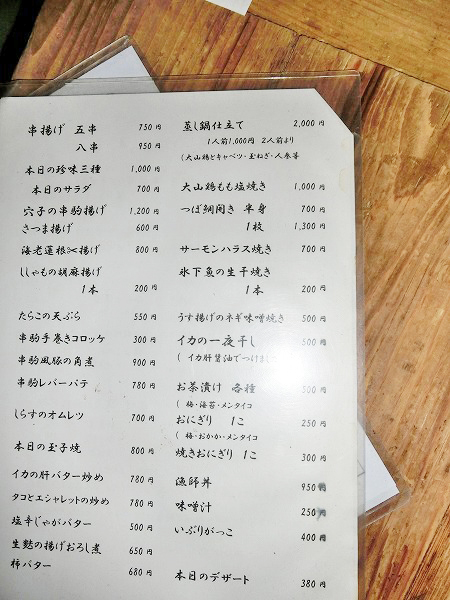 串揚げ 五串 750円
八串 950円
本日の珍味三種 1,000円
本日のサラダ 700円
穴子の串駒揚げ 1,200円
さつま揚げ 600円
海老蓮根〆揚げ 800円
ししゃもの胡麻揚げ
1本 200円
たらこの天ぷら 550円
串駒手巻きコロッケ 300円
串駒風豚の角煮 900円
串駒レバーパテ 780円
しらすのオムレツ 700円
本日の玉子焼 800円
イカの肝バター炒め 780円
タコとエシャレットの炒め 780円
塩辛じゃがバター 500円
生麩の揚げおろし煮 650円
柿バター 680円
蒸し鍋仕立て 2,000円
1人前1,000円 2人前より
(大山鶏とキャベツ・玉ねぎ・人参等
大山鶏もも塩焼き 1,000円
つぼ鯛開き 半身 700円
1枚 1,300円
サーモンハラス焼き 700円
氷下魚の生干焼き
1本 200円
うす揚げのネギ味噌焼き 500円
イカの一夜干し 500円
(イカ肝醤油でつけました
お茶漬け 各種 500円
(梅・海苔・メンタイコ
おにぎり 1こ 250円
(梅・おかか・メンタイコ
焼きおにぎり 1こ 300円
漁師丼 950円
味噌汁 250円
いぶりがっこ 400円
本日のデザート 380円